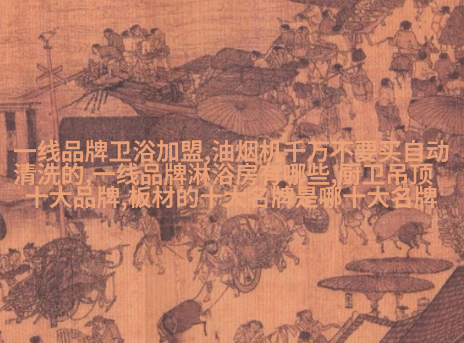 一线品牌卫浴加盟,油烟机千万不要买自动
清洗的,一线品牌淋浴房有哪些,厨卫吊顶
十大品牌,板材的十大名牌是哪十大名牌